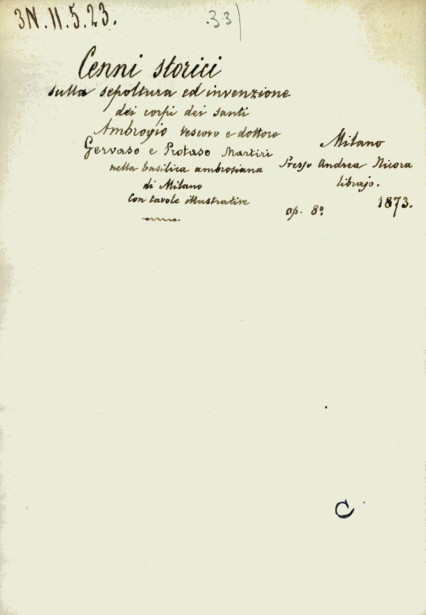 3N.11.5.23.
33
Cenni storici
sulla sepoltura ed invenzione
dei corpi dei santi
Ambrogio Vescovo e dottore
Gervaso e Protaso Martiri
nella basilica ambrosiana
di Milano
Con tavole illustrative
Milano
Presso Andrea Nicora
librajo.
1873.
op. 8º
C